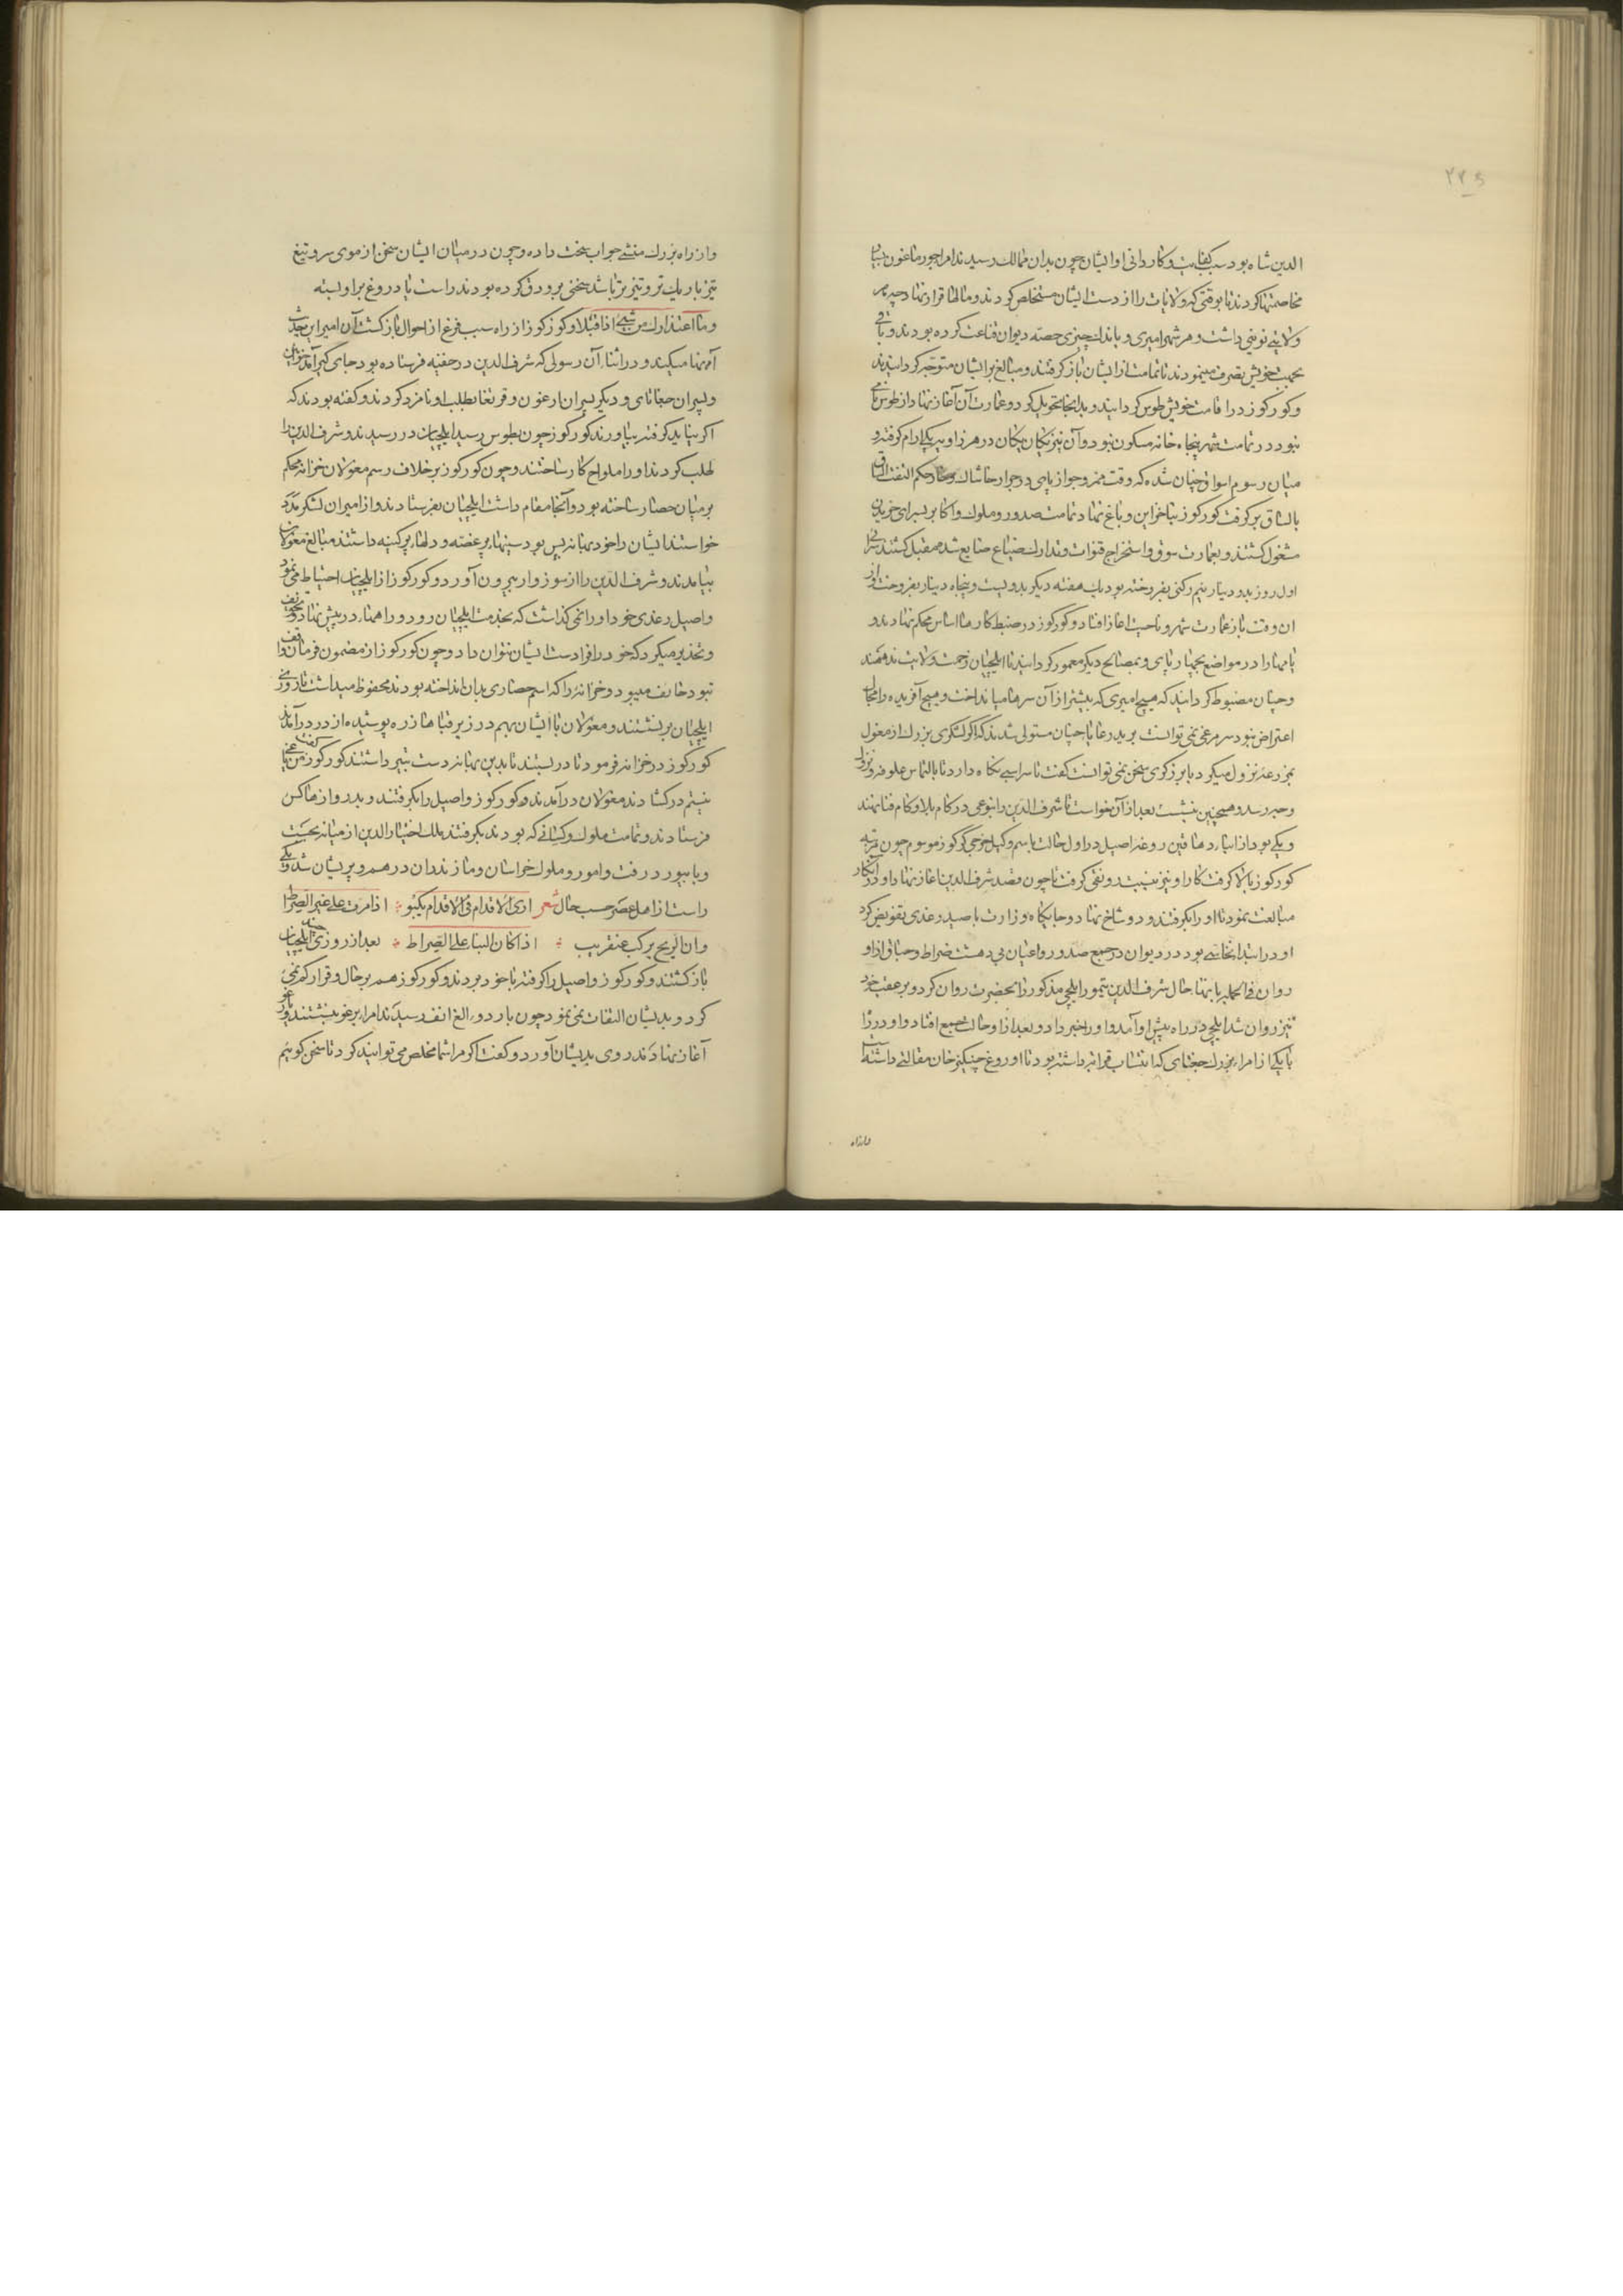 ۲۲۵
الدین شاه بود سبب کفایت و کاردانی او ایشان چون بدان ممالک رسیدند امرا جورماغون بسیار
مخاصمتها کردند تا بوقتی که ولایات را از دست ایشان مستخلص کردند و مالها قرار نهاد چه بهر
ولایتی نوینی داشت و هر شهر امیری و باندک چیزی حصه دیوان قناعت کرده بودند و باقی
بجهت خویش تصرف مینمودند تا تمامت از ایشان باز گرفتند و مبالغ بر ایشان متوجه گردانیدند
و کورکوز در اقامت خویش طوس گردانید و بدانجا تحویل کرد و عمارت آن آغاز نهاد از طوس نامی
نبود در تمامت شهر پنجاه خانه مسکون نبود و آن نیز یکان یکان در هر زاویه یکی ارام گرفته و
میان رسوم اسواق چنان شده که وقت ممر و جواز پایی در جوار خاشاک حکم التفت الساق
بالساق بر گرفت کورکوز بنا خزاین و باغ نهاد تمامت صدور و ملوک و اکابر بسرای خریدن
مشغول کشتند و بعمارت سوق و استخراج قنوات و تدارک ضیاع ضایع شده مقبل کشتند سرایی
اول روز بدو دینار نیم رکنی بفروخته بود یک هفته دیکر بدویست و پنجاه دینار بفروخت و از
ان وقت باز عمارت شهر و ناحیت اغاز افتاد و کورکوز در ضبط کارها اساس محکم نهاد و
یامها را در مواضع بچهارپای و بمصالح دیگر معمور گردانید تا ایلچیان زحمت ولایت ندهند
و چنان مضبوط گردانید که هیچ امیری که پیشتر از آن سرها میانداخت و هیچ آفریده را مجال
اعتراض نبود سر مرغی نمی توانست برید رعایا چنان مستولی شدند که اگر لشکری بزرگ از مغول
بمزرعه نزول میکرد با برزکری سخن نمی توانست گفت تا سر اسبی نگاه دارد تا بالتماس علوفه و نزل
و چه رسد و همچنین بنشست بعد از آن خواست تا شرف الدین را بنوعی در کام بلا و کام فنا نهند
و یکی بود از ابناء دهاقین روغد اصیل در اول حالت باسم وکیل خرجی کورکوز موسوم چون مرتبه
کورکوز بالا گرفت کار او نیز نسبت رونقی گرفت تا چون قصد شرف الدین اغاز نهاد او در انکار
مبالغت نمود تا او را بگرفتند و دو شاخ نهاد و جایگاه وزارت باصیل روغدی تفویض کرد
او در ابتدا نخاسی بود در دیوان در جمع صدور و اعیان بی دهشت ضراط و حباق ازاو
روان فی الجمله بانهاء حال شرف الدین تیمور ایلچی مذکور را بحضرت روان کرد و بر عقب خود
نیز روان شد ایلچی در راه پیش او آمد و او را خبر داد و بعد از او حالت صعب افتاد و او در راه
با یکی از امراء بزرک جغتای که انتساب قرابه داشته بود تا اوروغ چنکیز خان مقالتی داشته
واز راه بزرک منشی جواب سخت داده و چون در میان ایشان سخن از موی سر و تیغ
تیز باریک تر و تیز تر باشد سخنی بر ورق کرده بودند راست یا دروغ بر او بسته
وما اعتذارک من شیء اذا قیلا و کورکوز از راه سبب فزع از احوال باز کشت آن امیر این حدیث
آنجا میکند و در اثناء آن رسولی که شرف الدین در خفیه فرستاده بود جای گیر آمد خواتین
و پسران جغتای و دیگر پسران ارغون و قربغا بطلب او نامزد کردند و کفته بودند که
اگر نیاید گرفته بیاورند کورکوز چون بطوس رسید ایلچیان در رسیدند و شرف الدین را
طلب کردند او را ملواح کار ساختند و چون کورکوز بر خلاف رسم مغولان خزانه محکم
بر میان حصار ساخته بود و آنجا مقام داشت ایلچیان بفرستادند و از امیران لشکر مدد
خواستند ایشان را خود بهانه بس بود سینها پر غصه و دلها پر کینه داشتند مبالغ مغولان
بیامدند و شرف الدین را از سوزوار بیرون آورد و کورکوز از ایلچیان احتیاط می نمود
و اصیل رعدی خود او را نمی گذاشت که بخدمت ایلچیان رود و راهها در پیش نهاد و تخویف
و تحذیر میکرد که خود را فرا دست ایشان نتوان داد و چون کورکوز از مضمون فرمان واقف
نبود خایف میبود و خزانه را که اسم حصاری بدان انداخته بودند محفوظ میداشت تا روزی
ایلچیان بر نشستند و مغولان با ایشان بهم در زیر قباها زره پوشیده از در درآمدند
کورکوز در خزانه فرمود تا در بستند تا بدین بهانه دست بتیر داشتند کورکوز گفت من یاغی
نیستم در کشادند مغولان در آمدند و کورکوز و اصیل را بگرفتند و بدروازها کس
فرستادند و تمامت ملوک و کسانی که بودند بگرفتند ملک اختیار الدین از میانه بجست
و باببورد رفت و امور و ملوک خراسان و مازندران در هم و پریشان شد و یکی
راست از اهل عصر حسب حال شعر اری الاقدام فی الاقدام یکبو اذا مرت علی غیر الصراط
وان الریح یرکب عنقریب اذا کان البناء علی الصراط بعد از روزی چند ایلچیان
باز کشتند و کورکوز و اصیل را گرفته با خود بردند و کورکوز هم بر حال و قرار کم نمی
کرد و بدیشان التفات نمی نمود چون باردوء الغ انف رسیدند امراء یرغو بنشستند و یارغو
آغاز نهادند روی بدیشان آورد و گفت اگر مرا شما مخلص می توانید کرد تا سخن گویم